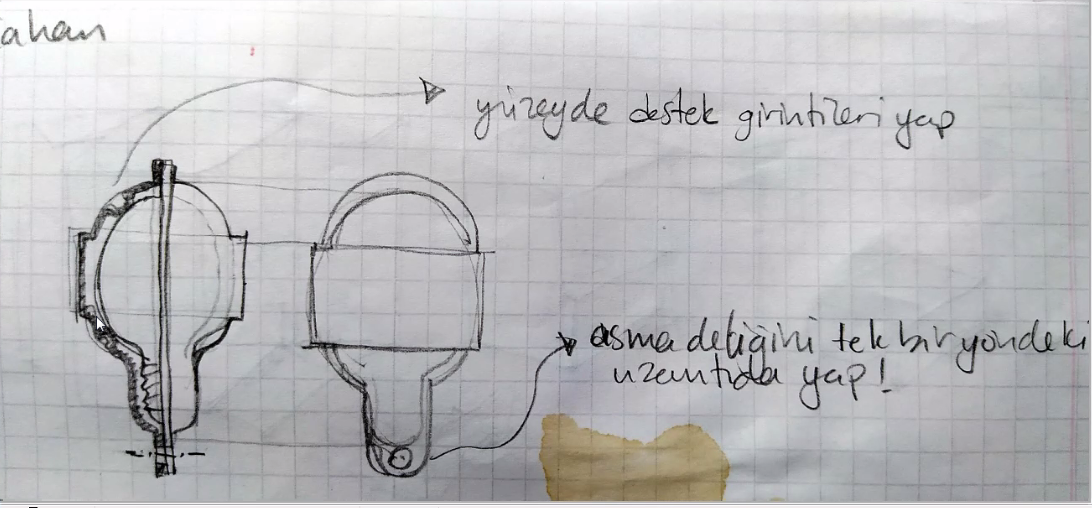 yüzeyde destek girintileri yap
asma deliğini tek bir yöndeki
uzantıda yap!